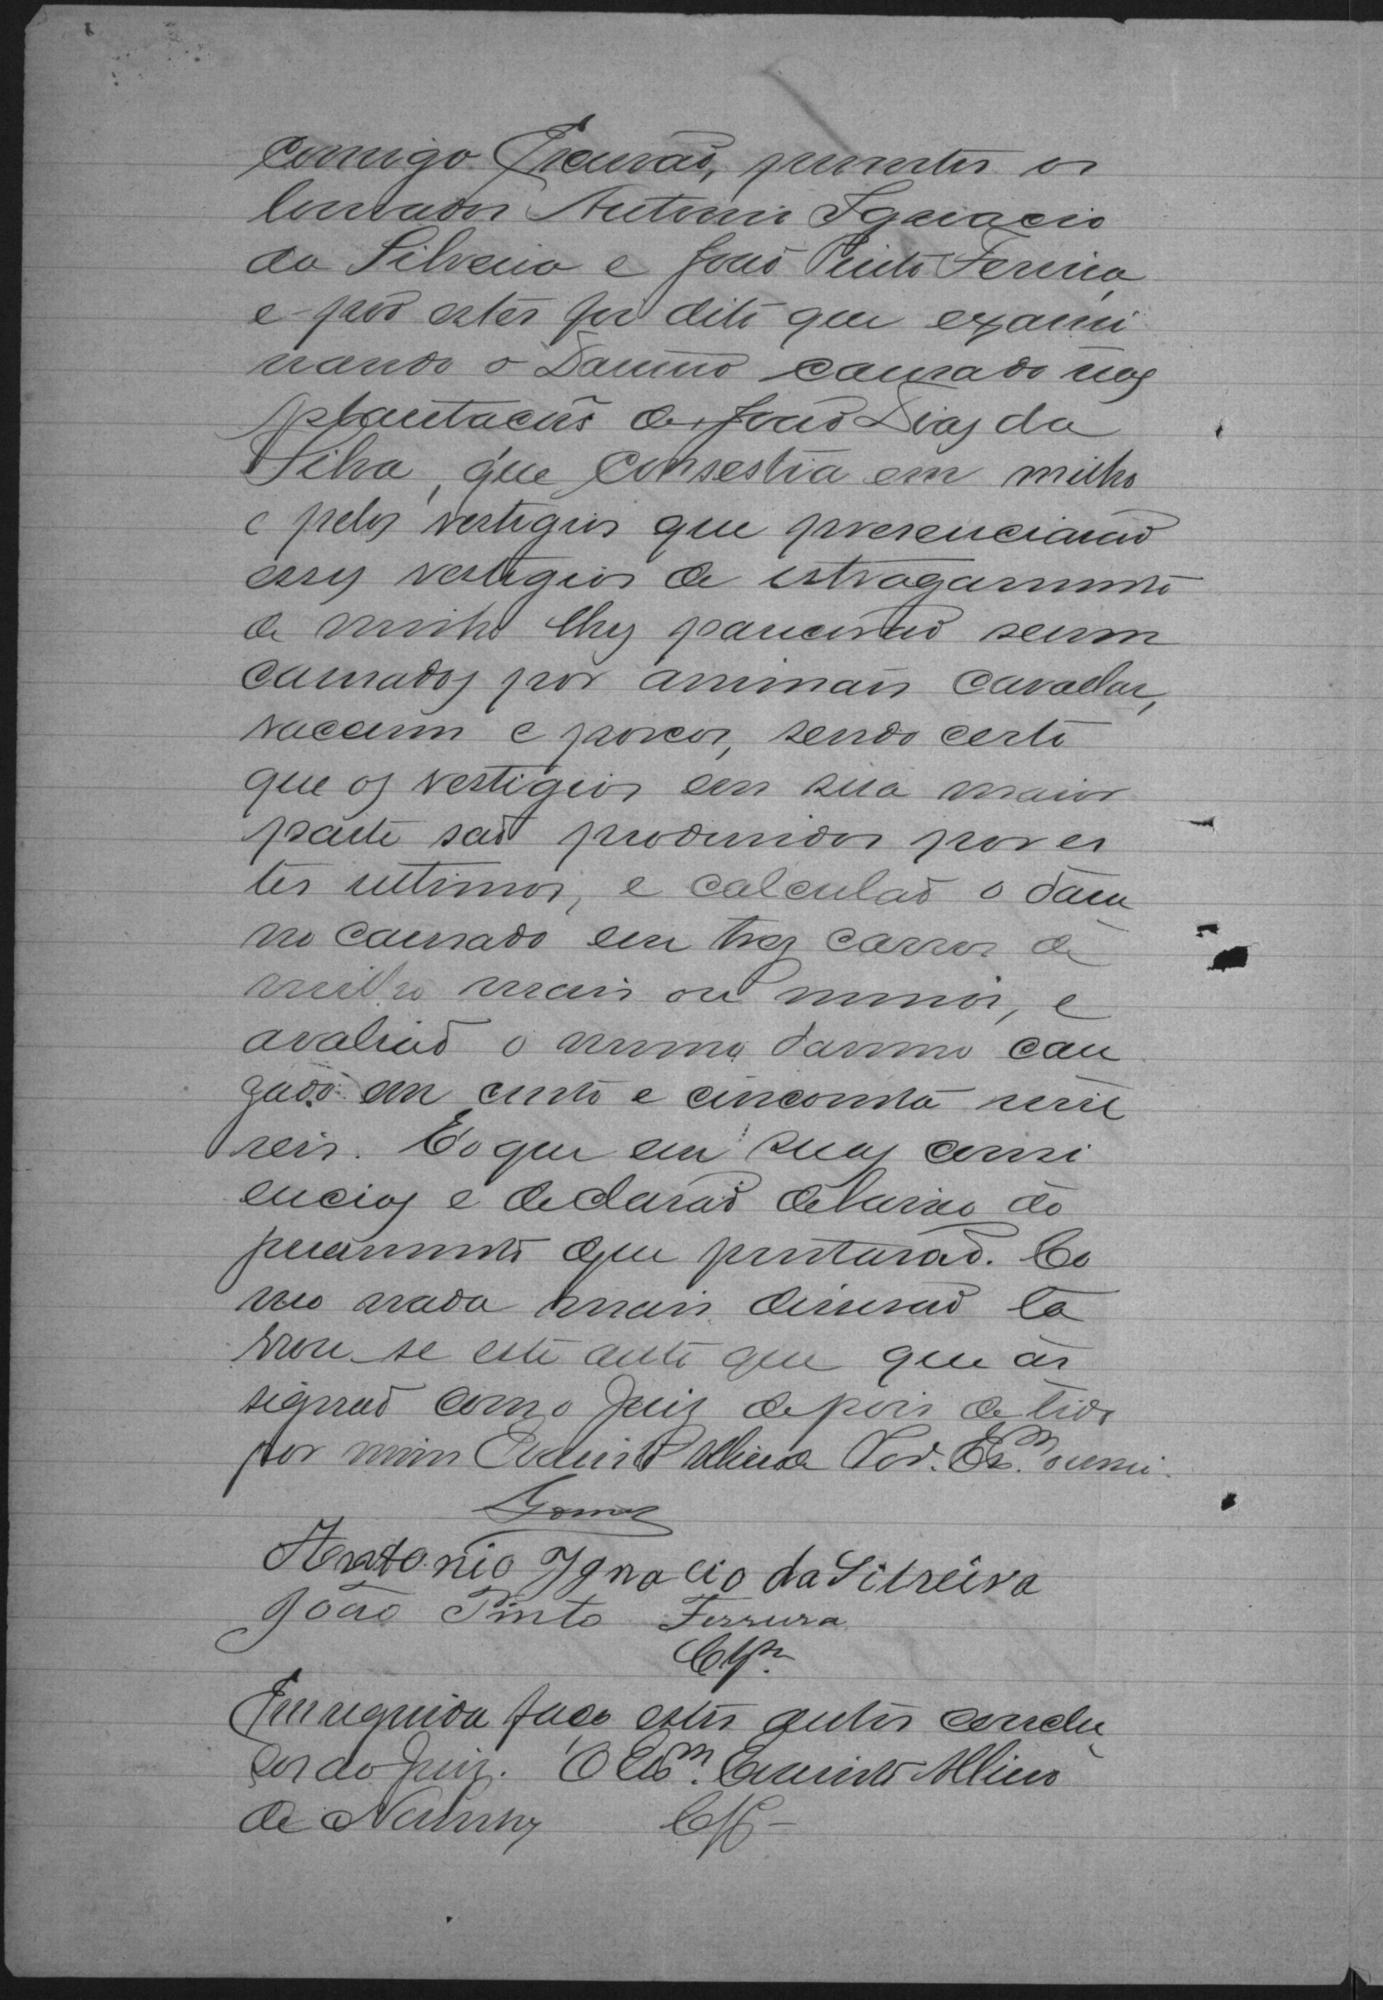 comigo Escrivaõ, presentes os
louvados Antonio Ignacio
da Silveira e Joaõ Pinto Ferreira,
e por estes foi dito que exami
nando o Damno causado nas
plantacões de Joaõ Dias da
Silva, que consestia em milho
e pelos vestigios que presenciaraõ
esses vestigios de estragamento
de milho lhes pareceraõ serem
causados por animais cavallar,
vaccum e porcos, sendo certo
que os vestigios em sua maior
parte saõ produsidos por es
tes ultimos, e calculaõ o dam
no causado em tres carros de
milho mais ou menos, e
avaliaõ o mesmo damno cau
zado em cento e cincoenta mil
reis. E o que em suas consi
encias e declaraõ debaixo do
juramento que prestaraõ. Co
mo nada mais disseraõ la
vrou-se este auto que que as
signaõ com o Juiz depois de lido
por mim Evaristo Albino Esm.
Gomes
Antonio Ignacio da Silveira
João Pinto Ferreira
Clsm.
Em seguida faço estes autos conclu
sos ao Juiz. O Esm. Evaristo Albino
de